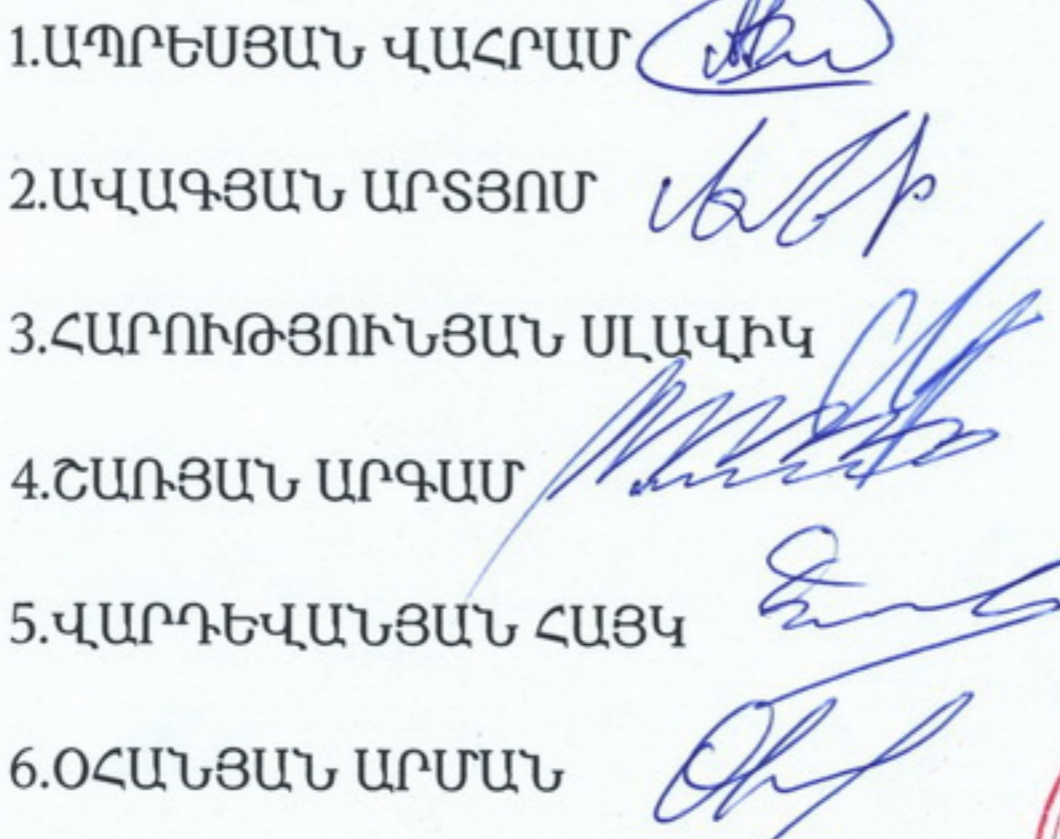 1.ԱՊՐԵՍՅԱՆ ՎԱՀՐԱՄ
2.ԱՎԱԳՅԱՆ ԱՐՏՅՈՄ
3.ՀԱՐՈՒԹՅՈՒՆՅԱՆ ՍԼԱՎԻԿ
4.ՇԱՌՅԱՆ ԱՐԳԱՄ
5.ՎԱՐԴԵՎԱՆՅԱՆ ՀԱՅԿ
6.ՕՀԱՆՅԱՆ ԱՐՄԱՆ